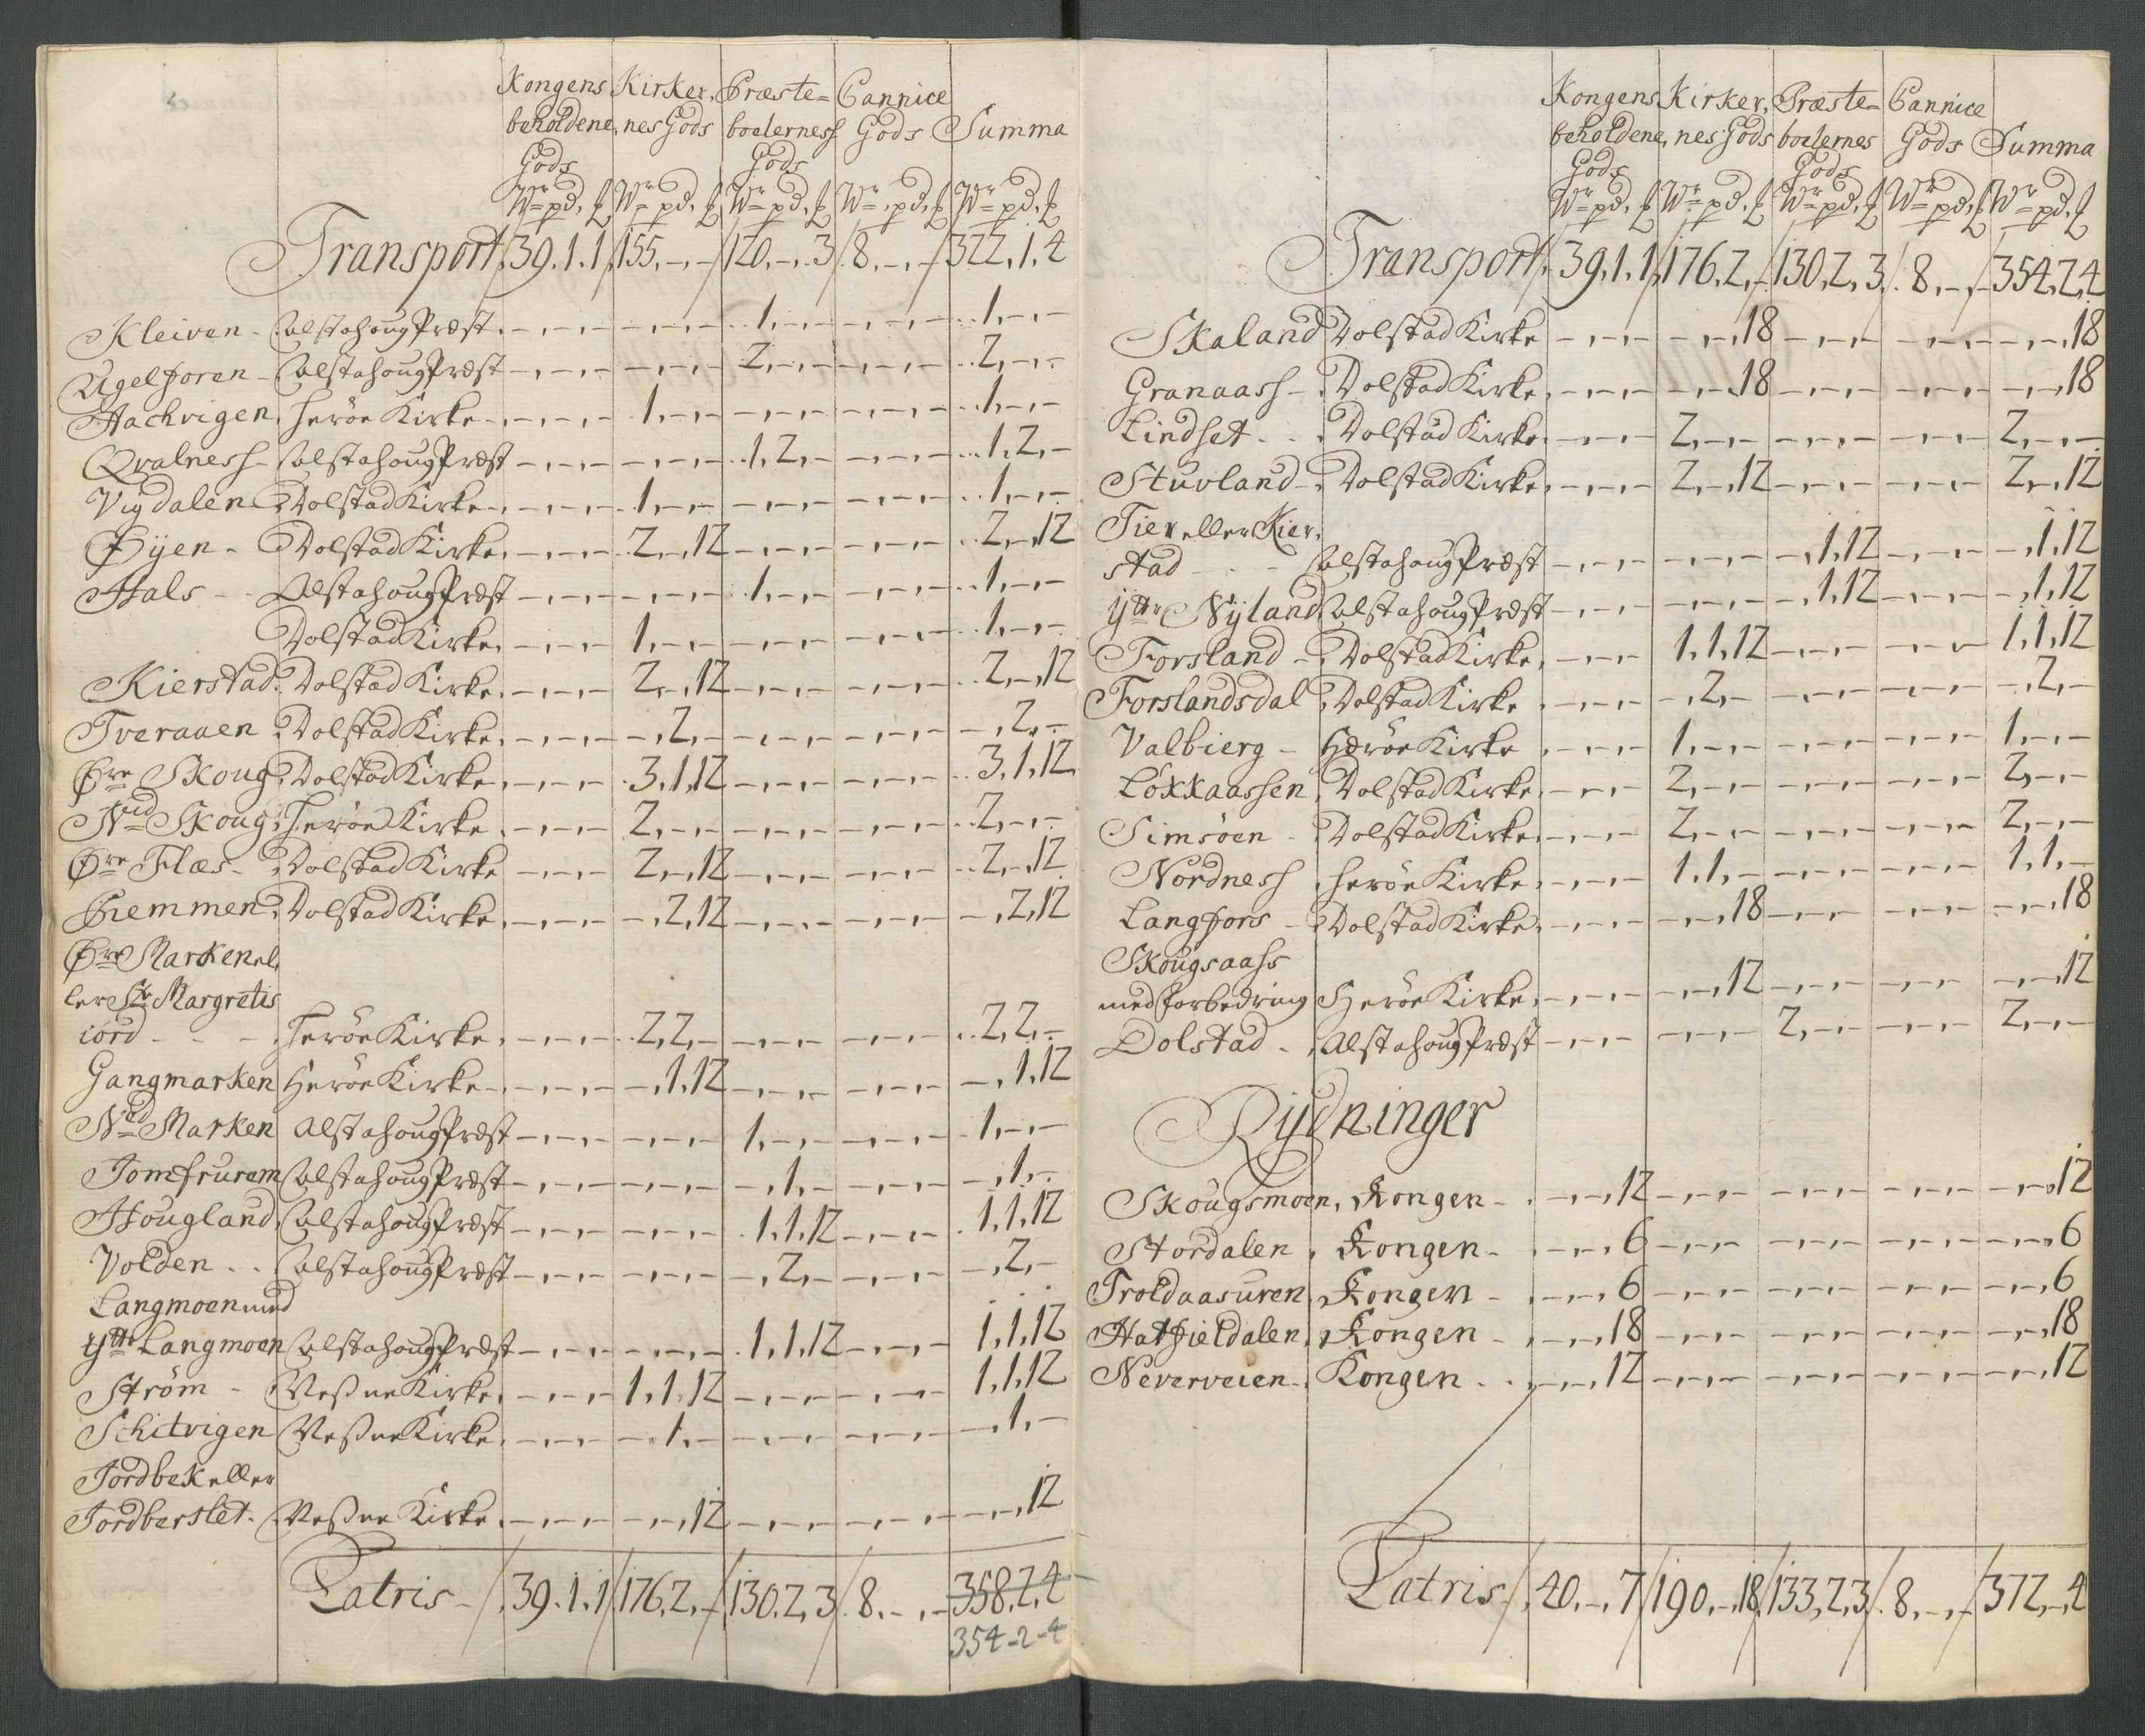 Kongens Kirker, Præste= Cannice
beholdene, nes Gods boelerness Gods Summa
Gods Gods
Wr pd, ℔ Wr pd, ℔ Wr pd, ℔ Wr, pd, ℔ Wr pd, ℔
Transport 39.1.1 155,-,- 120,-,3 8,-,- 322,1,4
Kleiven - Alstahoug Præst -,-,- -,-,- 1,-,- -,-,- 1,-,-
Ugelforen - Alstahoug Præst -,-,- -,-,- 2,-,- -,-,- 2,-,-
Hachvigen, Herøe Kirke -,-,- 1,-,- -,-,- -,-,- 1,-,-
Qvalness - Alstahoug Præst -,-,- -,-,- 1,2,- -,-,- 1,2,-
Vigdalen Dolstad Kirke -,-,- 1,-,- -,-,- -,-,- 1,-,-
Øyen - Dolstad Kirke -,-,- 2,-,12 -,-,- -,-,- 2,-,12
Hals - Alstahoug Præst -,-,- -,-,- 1,-,- -,-,- 1,-,-
Dolstad Kirke -,-,- 1,-,- -,-,- -,-,- 1,-,-
Kierstad. Dolstad Kirke -,-,- 2,-,12 -,-,- -,-,- 2,-,12
Tveraaen Dolstad Kirke -,-,- -,2,- -,-,- -,-,- -,2,-
Øre Skoug Dolstad Kirke -,-,- 3,1,12 -,-,- -,-,- 3,1,12
Ned Skoug Herøe Kirke -,-,- 2,-,- -,-,- -,-,- 2,-,-
Øre Flæs - Dolstad Kirke -,-,- 2,-,12 -,-,- -,-,- 2,-,12
Fiemmen Dolstad Kirke -,-,- -,2,12 -,-,- -,-,- -,2,12
Øre Marken el,
ler Ste Margretis
iord - - - Herøe Kirke -,-,- 2,2,- -,-,- -,-,- 2,2,-
Gangmarken Herøe Kirke -,-,- -,1,12 -,-,- -,-,- -,1,12
Ned Marken Alstahoug Præst -,-,- -,-,- 1,-,- -,-,- 1,-,-
Jomfrurem Alstahoug Præst -,-,- -,-,- -,1,- -,-,- -,1,-
Hougland Alstahoug Præst -,-,- -,-,- 1,1,12 -,-,- 1,1,12
Volden - - Alstahoug Præst -,-,- -,-,- -,2,- -,-,- -,2,-
Langmoen med
Ytte Langmoen Alstahoug Præst -,-,- -,-,- 1,1,12 -,-,- 1,1,12
Strøm - Weßne Kirke -,-,- 1,1,12 -,-,- -,-,- 1,1,12
Schitvigen Weßne Kirke -,-,- -,1,- -,-,- -,-,- -,1,-
Jordbek eller
Jordberslet - Weßne Kirke -,-,- -,-,12 -,-,- -,-,- -,-,12
Latris - 39.1.1 176,2,- 130,2,3 8,-,- 358,2,4
354-2-4
Kongens Kirker, Præste= Cannice
beholdene, nes Gods boelernes Gods Summa
Gods Gods
Wr pd, ℔ Wr pd, ℔ Wr pd, ℔ Wr pd, ℔ Wr pd, ℔
Transport 39,1,1 176,2,- 130,2,3 8,-,- 354,2,4
Skaland Dolstad Kirke -,-,- -,-,18 -,-,- -,-,- -,-,18
Granaass - Dolstad Kirke -,-,- -,-,18 -,-,- -,-,- -,-,18
Lindset - - Dolstad Kirke -,-,- 2,-,- -,-,- -,-,- 2,-,-
Stuvland - Dolstad Kirke -,-,- 2,-,12 -,-,- -,-,- 2,-,12
Tier eller Kier,
stad - - - Alstahoug Præst -,-,- -,-,- -,1,12 -,-,- -,1,12
Ytte Nyland Alstahoug Præst -,-,- -,-,- -,1,12 -,-,- -,1,12
Forsland - Dolstad Kirke -,-,- 1,1,12 -,-,- -,-,- 1,1,12
Forslandsdal Dolstad Kirke -,-,- -,2,- -,-,- -,-,- -,2,-
Valbierg - Herøe Kirke -,-,- 1,-,- -,-,- -,-,- 1,-,-
Løxkaassen Dolstad Kirke -,-,- 2,-,- -,-,- -,-,- 2,-,-
Simsøen - Dolstad Kirke -,-,- 2,-,- -,-,- -,-,- 2,-,-
Nordness Herøe Kirke -,-,- 1,1,- -,-,- -,-,- 1,1,-
Langfors - Dolstad Kirke -,-,- -,-,18 -,-,- -,-,- -,-,18
Skougsaass
med forbedring Herøe Kirke -,-,- -,-,12 -,-,- -,-,- -,-,12
Dolstad - Alstahoug Præst -,-,- -,-,- 2,-,- -,-,- 2,-,-
Rydninger
Skougsmoen, Kongen - -,-,12 -,-,- -,-,- -,-,- -,-,12
Stordalen, Kongen - -,-,6 -,-,- -,-,- -,-,- -,-,6
Troldaasuren, Kongen - -,-,6 -,-,- -,-,- -,-,- -,-,6
Hatfieldalen, Kongen - -,-,18 -,-,- -,-,- -,-,- -,-,18
Neverveien - Kongen - - -,-,12 -,-,- -,-,- -,-,- -,-,12
Latris - 40,-,7 190,-,18 133,2,3 8,-,- 372,-,4